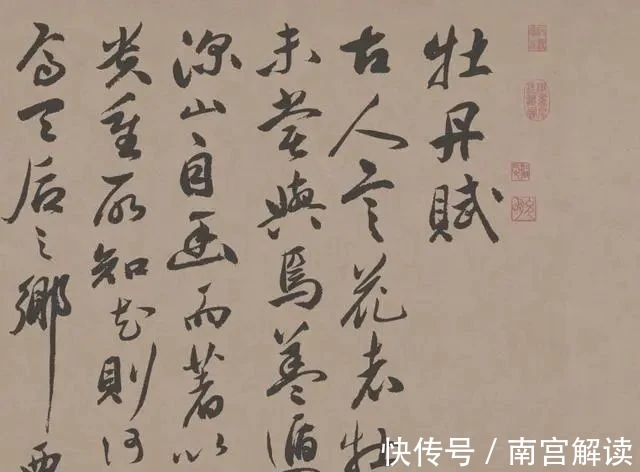 牡丹賦
古人言花者牡
未嘗與焉蓋遁
深山自幽而著以
貴重所知花則何
焉天后之鄉西
快传号 / 南宫解读